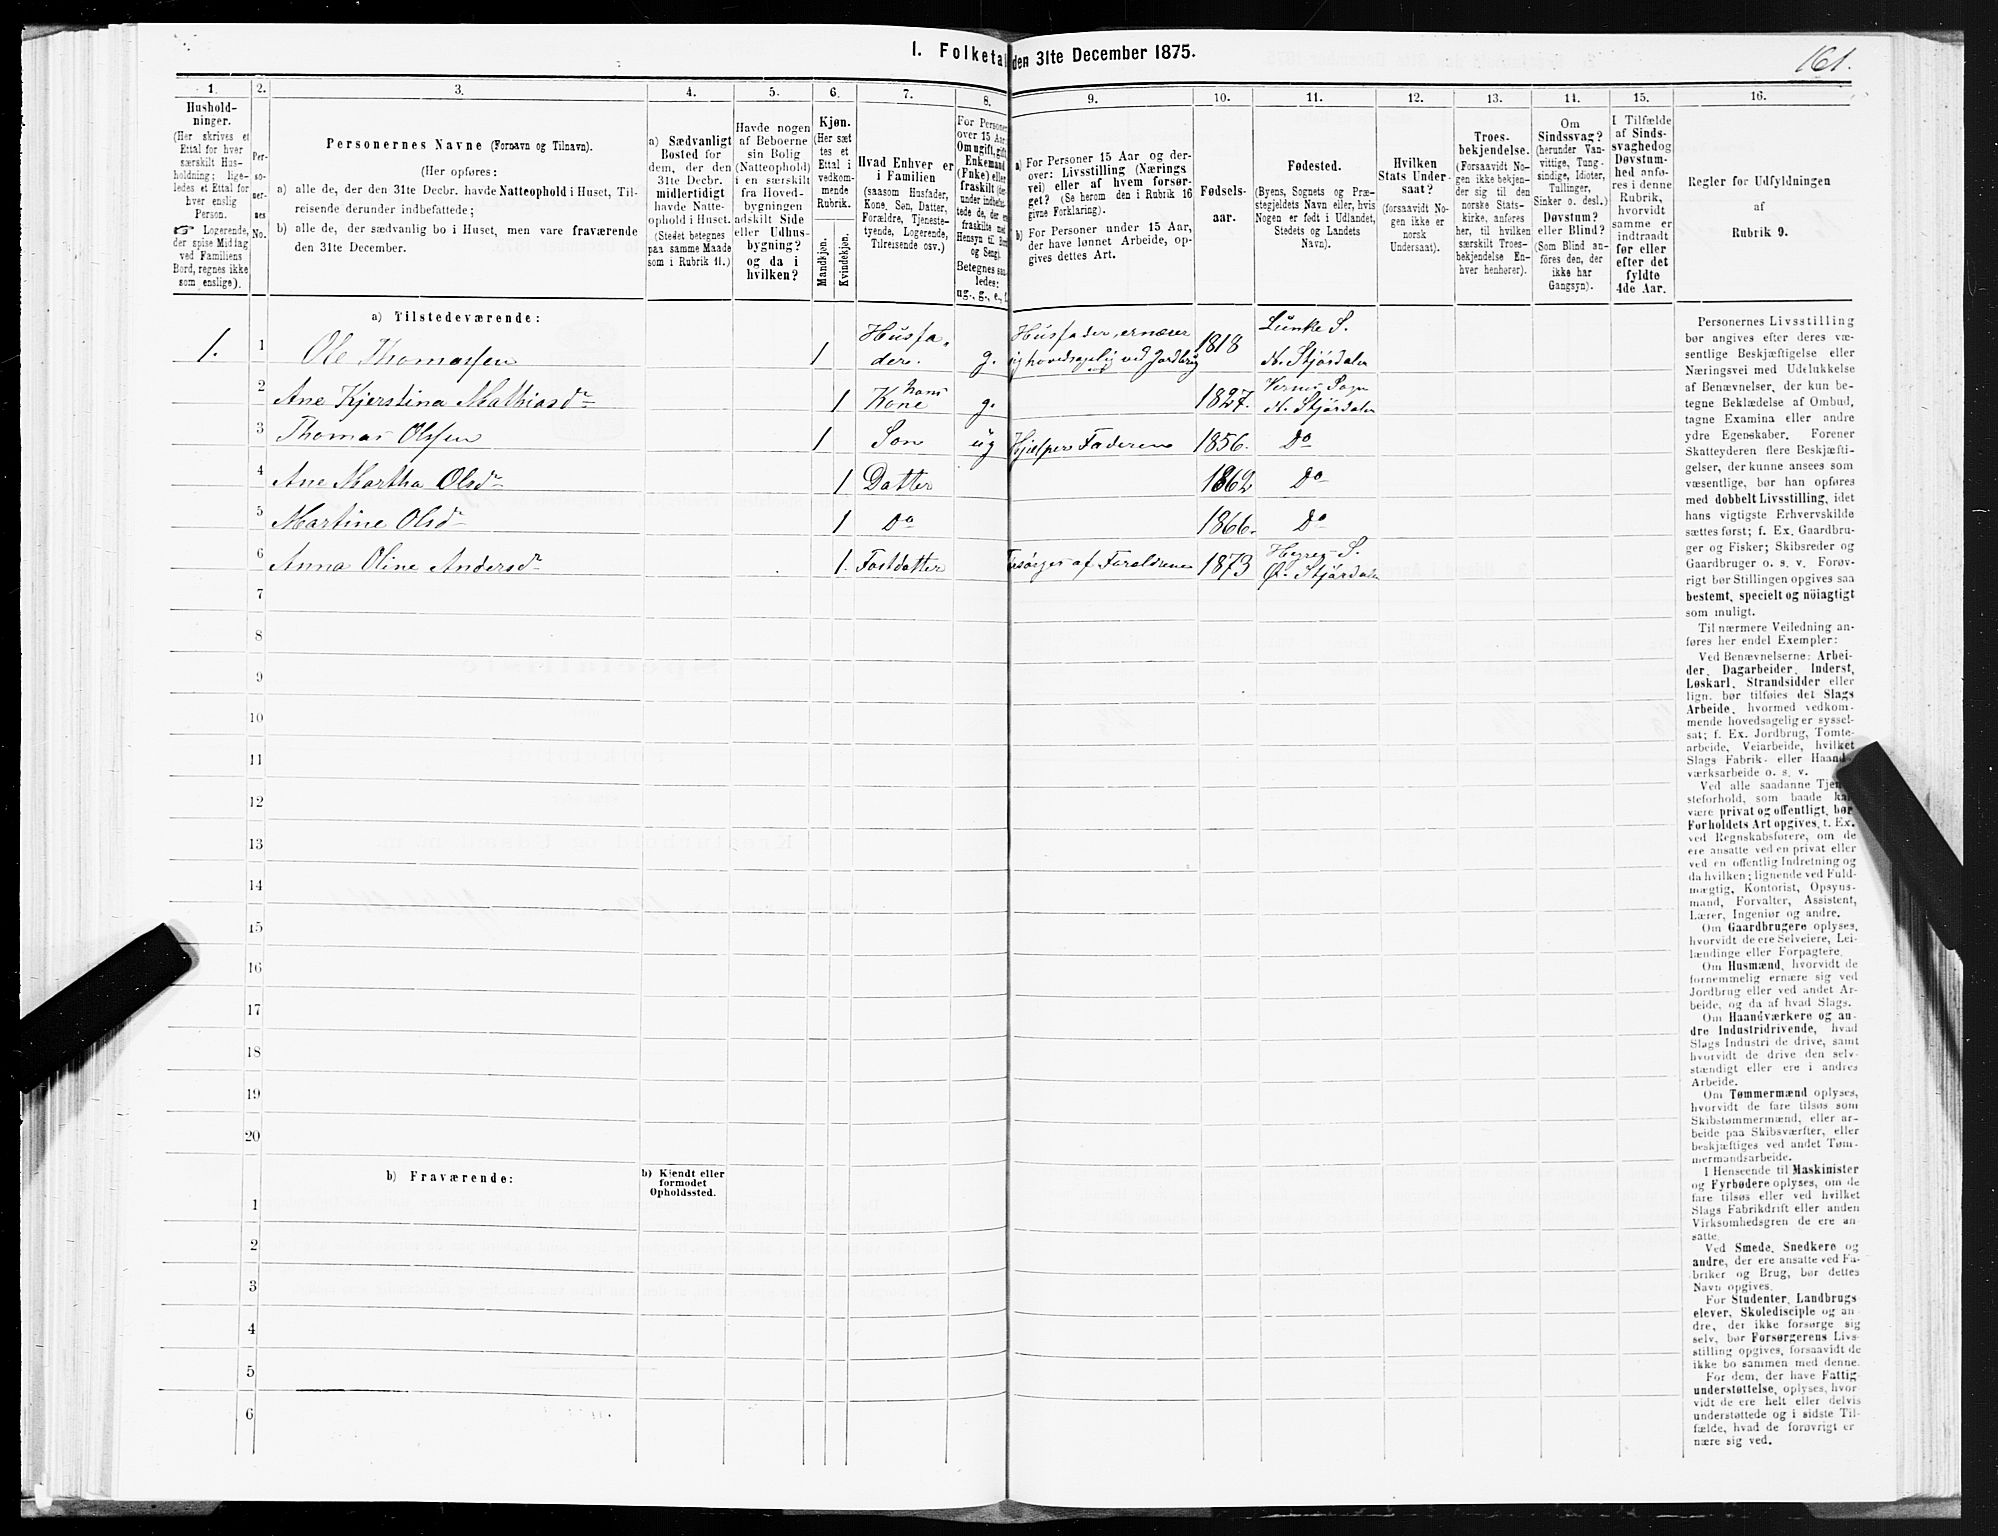 I. Folketal den 31te December 1875.
161.
1.
Hushold-
ninger.
(Her skrives et
Ettal for hver
særskilt Hus-
holdning; lige-
ledes et Ettal for
hver enslig
Person.
☞ Logerende,
der spise Middag
ved Familiens
Bord, regnes ikke
som enslige).
2.
Per-
so-
ner-
nes
No.
3.
Personernes Navne (Fornavn og Tilnavn).
(Her opføres:
a) alle de, der den 31te Decbr. havde Natteophold i Huset, Til-
reisende derunder indbefattede;
b) alle de, der sædvanlig bo i Huset, men vare fraværende
den 31te December.
4.
a) Sædvanligt
Bosted for
dem, der den
31te Decbr.
midlertidigt
havde Natte-
ophold i Huset.
(Stedet betegnes
paa samme Maade
som i Rubrik 11.)
5.
Havde nogen
af Beboerne
sin Bolig
(Natteophold)
i en særskilt
fra Hoved-
bygningen
adskilt Side
eller Udhus-
bygning?
og da i
hvilken?
6.
Kjøn.
(Her sæt
tes et
Ettal i
vedkom-
mende
Rubrik.
Mandkjøn.
Kvindekjøn.
7.
Hvad Enhver er
i Familien
(saasom Husfader,
Kone, Søn, Datter,
Forældre, Tjeneste-
tyende, Logerende,
Tilreisende osv.)
8.
For Personer
over 15 Aar:
Om ugift, gift,
Enkemand
(Enke) eller
fraskilt (der-
under indbefat-
tede de, der ere
fraskilte med
Hensyn til Bord
og Seng).
Betegnes saa-
ledes:
ug., g., e., f.
9.
a) For Personer 15 Aar og der-
over: Livsstilling (Nærings
vei) eller af hvem forsør-
get? (Se herom den i Rubrik 16
givne Forklaring).
b) For Personer under 15 Aar,
der have lønnet Arbeide, op-
gives dettes Art.
10.
Fødsels-
aar.
11.
Fødested.
(Byens, Sognets og Præ-
stegjeldets Navn eller, hvis
Nogen er født i Udlandet,
Stedets og Landets
Navn).
12.
Hvilken
Stats Under-
saat?
(forsaavidt No-
gen ikke er
norsk
Undersaat).
13.
Troes-
bekjendelse.
(Forsaavidt No-
gen ikke bekjen-
der sig til den
norske Stats-
kirke, anføres
her, til hvilken
særskilt Troes-
bekjendelse En-
hver henhører).
14.
Om
Sindssvag?
(herunder Van-
vittige, Tung-
sindige, Idioter,
Tullinger,
Sinker o. desl.)
Døvstum?
eller Blind?
(Som Blind an-
føres den, der
ikke har
Gangsyn).
15.
I Tilfælde
af Sinds-
svaghed og
Døvstum-
hed anfø-
res i denne
Rubrik,
hvorvidt
samme er
indtraadt
før eller
efter det
fyldte
4de Aar.
16.
Regler for Udfyldningen
af
Rubrik 9.
a) Tilstedeværende:
1. 1 Ole Thomassen 1 Husfader. g. Husfader, ernærer sig hovedsagelig ved Jordbrug 1818 Lunke S. N. Stjørdalen
2 Ane Kjerstina Mathiasdr 1 hans Kone g. 1827. Vernes Sogn N. Stjørdalen
3 Thomas Olssen 1 Søn ug Hjælper Faderen 1856. Do
4 Ane Martha Olsdr 1 Datter 1862 Do
5 Martine Olsdr 1 Do 1866. Do
6 Anna Oline Andersdr 1. Fostdatter Forsørges af Forældrene 1873 Hegre S. Ø. Stjørdalen
7
8
9
10
11
12
13
14
15
16
17
18
19
20
b) Fraværende:
b) Kjendt eller
formodet
Opholdssted.
1
2
3
4
5
6
Personernes Livsstilling
bør angives efter deres væ-
sentlige Beskjæftigelse eller
Næringsvei med Udelukkelse
af Benævnelser, der kun be-
tegne Beklædelse af Ombud,
tagne Examina eller andre
ydre Egenskaber. Forener
Skatteyderen flere Beskjæfti-
gelser, der kunne ansees som
væsentlige, bør han opføres
med dobbelt Livsstilling, idet
hans vigtigste Erhvervskilde
sættes først; f. Ex. Gaardbru-
ger og Fisker; Skibsreder og
Gaardbruger o. s. v. Forøv-
rigt bør Stillingen opgives saa
bestemt, specielt og nöiagtigt
som muligt.
Til nærmere Veiledning an-
føres her endel Exempler:
Ved Benævnelserne: Arbei-
der, Dagarbeider, Inderst,
Løskarl, Strandsidder eller
lign. bør tilføies det Slags
Arbeide, hvormed vedkom-
mende hovedsagelig er syssel-
sat; f. Ex. Jordbrug, Tomte-
arbeide, Veiarbeide, hvilket
Slags Fabrik- eller Haand-
værksarbeide o. s. v.
Ved alle saadanne Tjene-
steforhold, som baade kan
være privat og offentligt, bør
Forholdets Art opgives, t. Ex.
ved Regnskabsførere, om de
ere ansatte ved en privat eller
ved en offentlig Indretning og
da hvilken; lignende ved Fuld-
mægtig, Kontorist, Opsyns-
mand, Forvalter, Assistent,
Lærer, Ingeniør og andre.
Om Gaardbrugere oplyses,
hvorvidt de ere Selveiere, Lei-
lændinge eller Forpagtere.
Om Husmænd, hvorvidt de
fornemmelig ernære sig ved
Jordbrug eller ved andet Ar-
beide, og da af hvad Slags.
Om Haandværkere og an-
dre Industridrivende, hvad
Slags Industri de drive, samt
hvorvidt de drive den selv-
stændigt eller ere i andres
Arbeide.
Om Tømmermænd oplyses,
hvorvidt de fare tilsøs som
Skibstømmermænd, eller ar-
beide paa Skibsværfter, eller
beskjæftiges ved andet Tøm-
mermandsarbeide.
I Henseende til Maskinister
og Fyrbødere oplyses, om de
fare tilsøs eller ved hvilket
Slags Fabrikdrift eller anden
Virksomhedsgren de ere an-
satte.
Ved Smede, Snedkere og
andre, der ere ansatte ved Fa-
briker og Brug, bør dettes
Navn opgives.
For Studenter, Landbrugs
elever, Skoledisciple og an-
dre, der ikke forsørge sig
selv, bør Forsørgerens Livs-
stilling opgives, forsaavidt de
ikke bo sammen med denne.
For dem, der have Fattig
understøttelse, oplyses, hvor-
vidt de ere helt eller delvis
understøttede og i sidste Til-
fælde, hvad de forøvrigt er
nære sig ved.